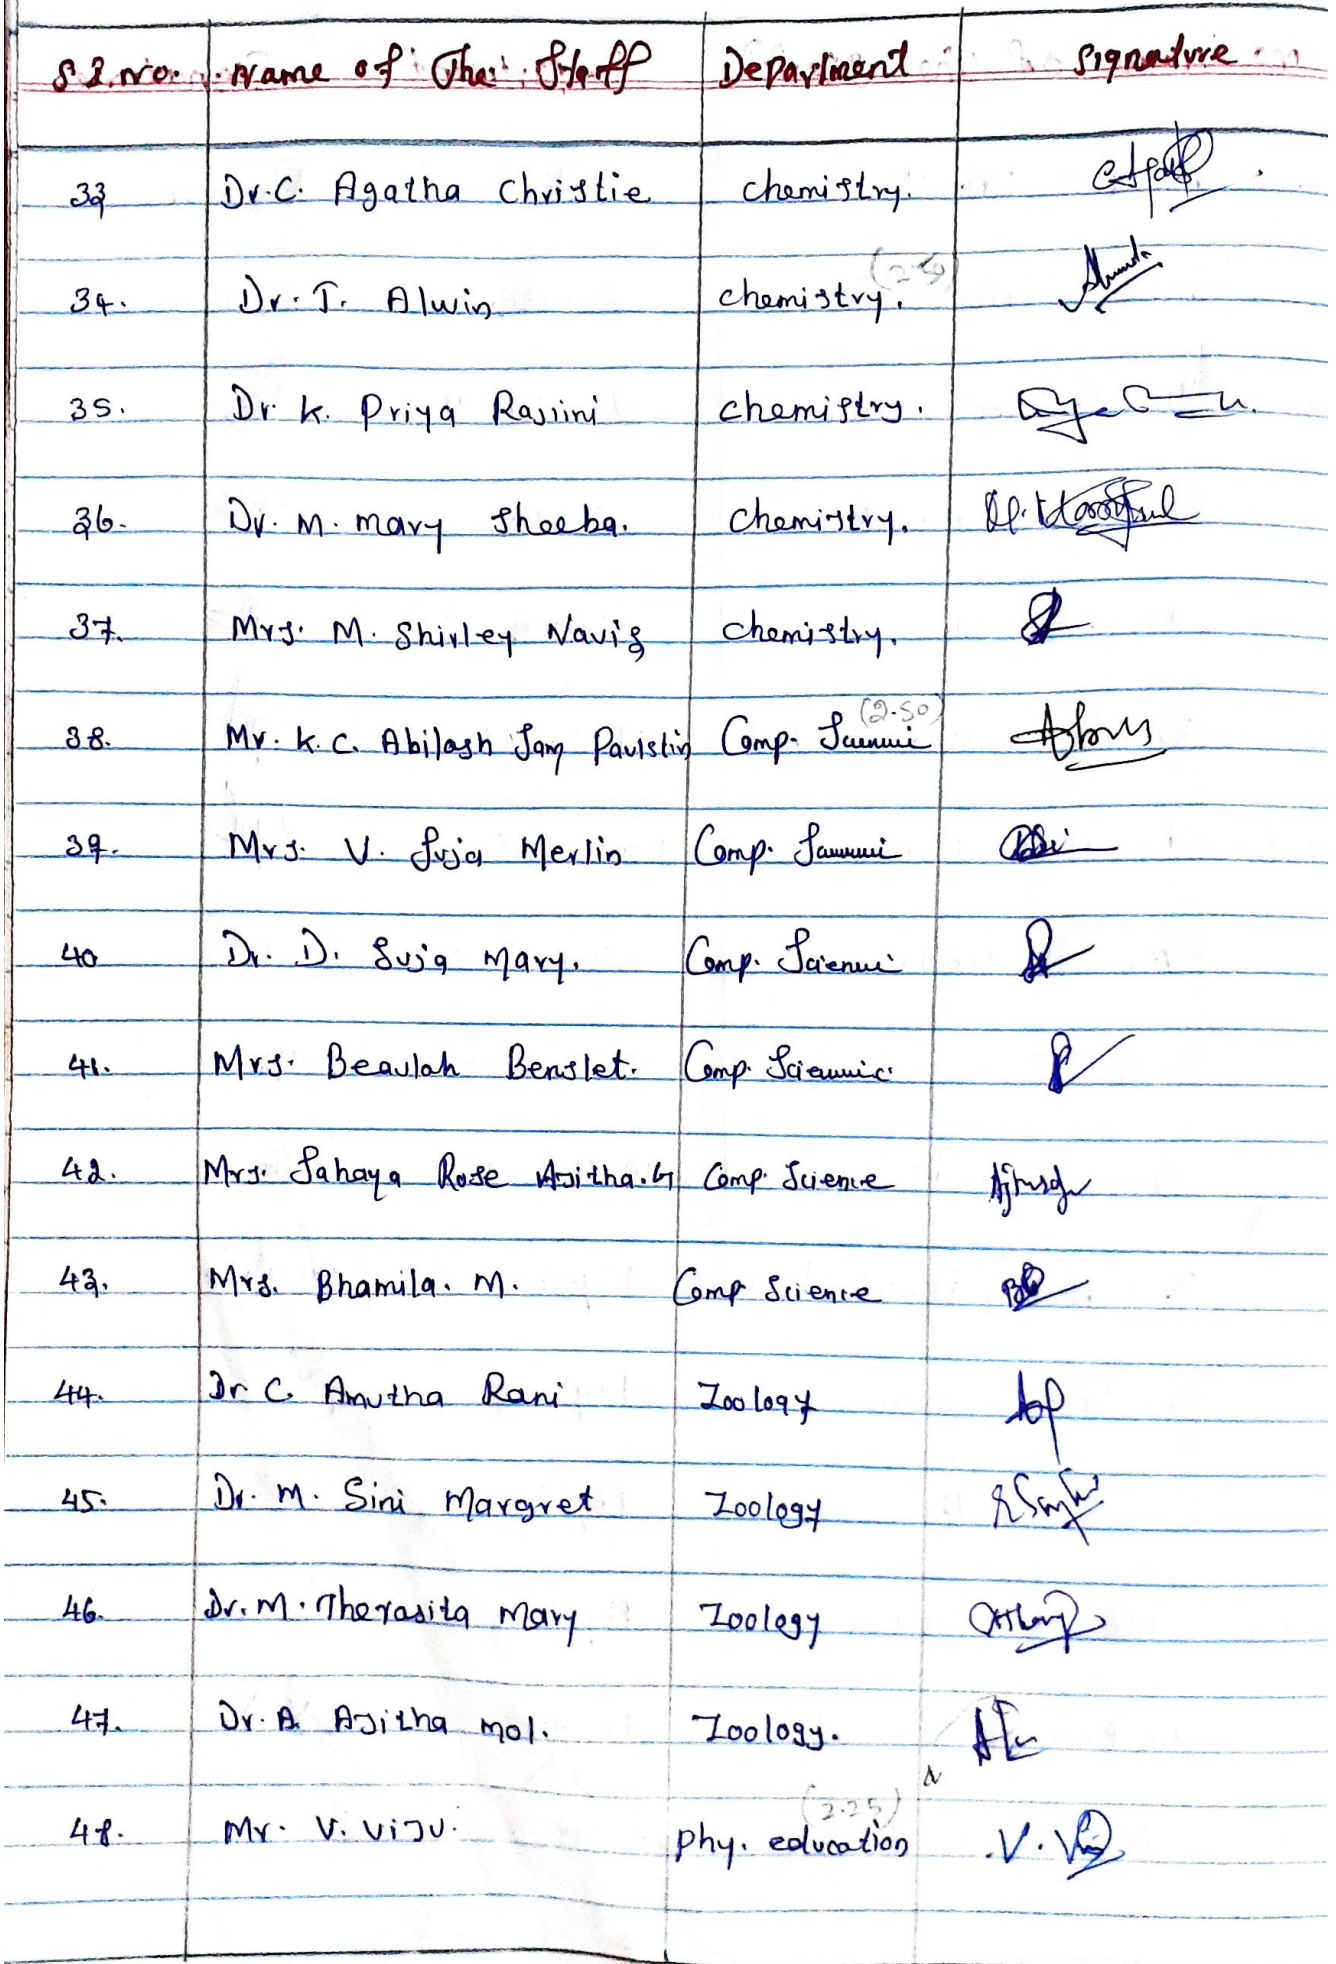 Sl.No. Name of The Staff Department Signature
33 Dr. C. Agatha Christie Chemistry.
(2.50)
34. Dr. T. Alwin Chemistry.
35. Dr. K. Priya Rajini Chemistry.
36. Dr. M. Mary Sheeba. Chemistry.
37. Mrs. M. Shirley Navis Chemistry.
(2.50)
38. Mr. K.C. Abilash Sam Paulstin Comp. Science
39. Mrs. V. Suja Merlin Comp. Science
40 Dr. D. Suja Mary. Comp. Science
41. Mrs. Beaulah Benslet. Comp. Science
42. Mrs. Sahaya Rose Ajitha.G Comp. Science
43. Mrs. Bhamila. M. Comp Science
44. Dr C. Amutha Rani Zoology
45. Dr. M. Sini Margret Zoology
46. Dr. M. Therasita Mary Zoology
47. Dr. A. Ajitha mol. Zoology.
(2.25)
48. Mr. V. Viju. Phy. education V.